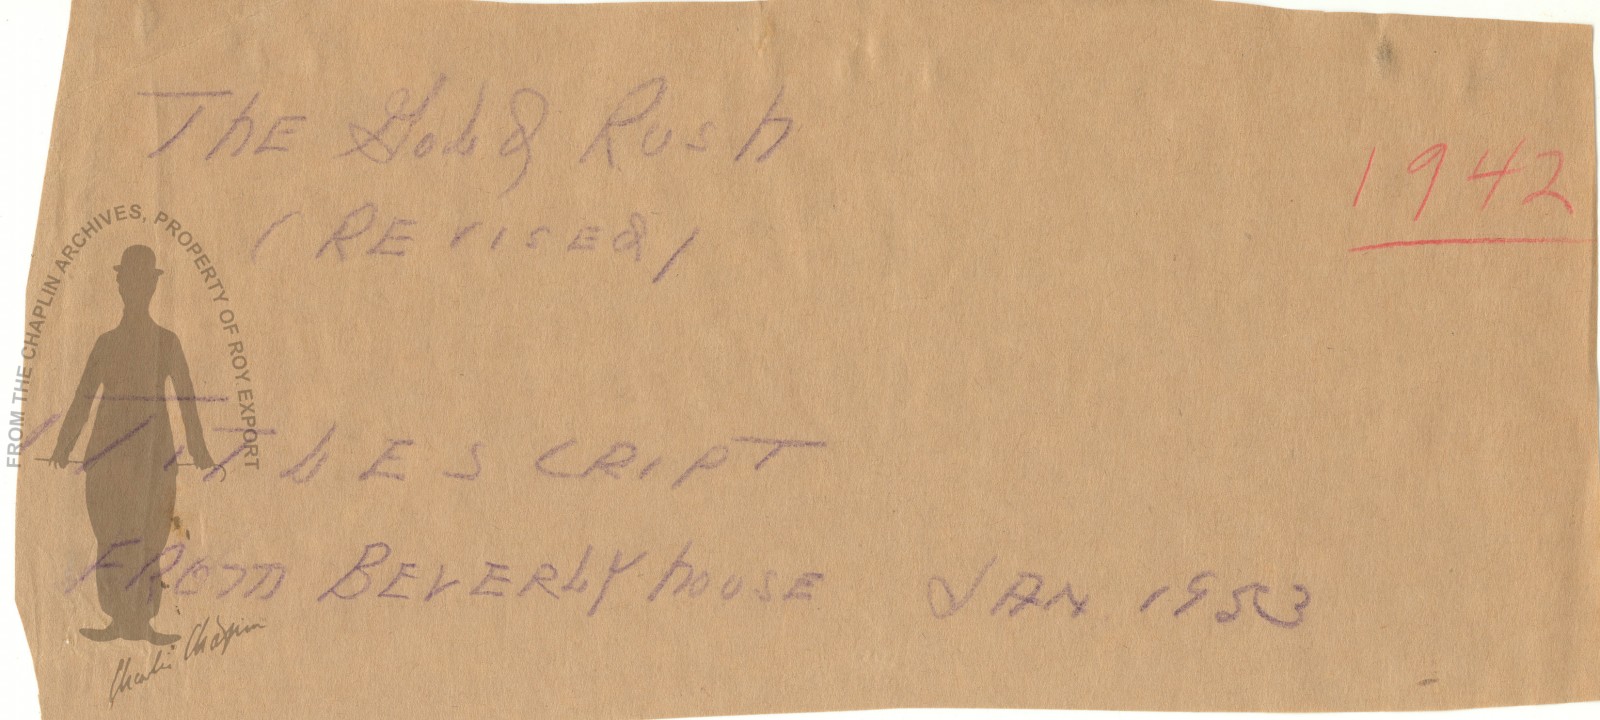 The Gold Rush
1942
(Revised)
Title script
From Beverly house Jan 1953
FROM THE CHAPLIN ARCHIVES, PROPERTY OF ROY EXPORT
Charlie Chaplin